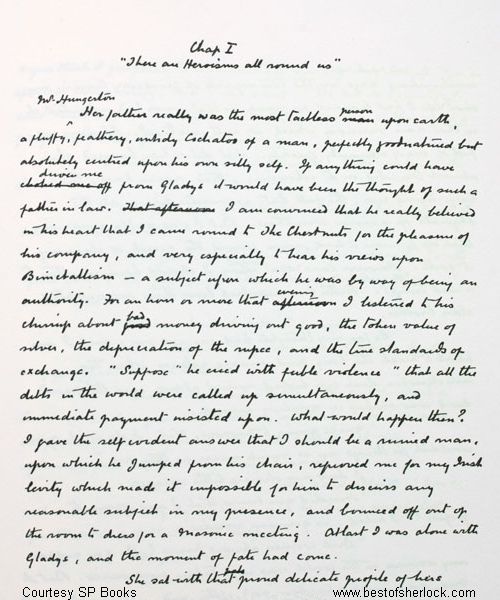 Chap I
"There are Heroisms all round us"
Mr Hungerton
Her father really was the most tactless man person upon earth,
a fluffy, feathery, untidy Cockatoo of a man, perfectly goodnatured but
absolutely centred upon his own silly self. If anything could have
driven me
choked me off from Gladys it would have been the thought of such a
father in law. That afternoon I am convinced that he really believed
in his heart that I came round to The Chestnuts for the pleasure of
his company, and very especially to hear his views upon
Bimetallism – a subject upon which he was by way of being an
evening
authority. For an hour or more that afternoon I listened to his
bad
chirrup about good money driving out good, the token value of
silver, the depreciation of the rupee, and the true standards of
exchange. "Suppose" he cried with feeble violence "that all the
debts in the world were called up simultaneously, and
immediate payment insisted upon. What would happen then?
I gave the self evident answer that I should be a ruined man,
upon which he jumped from his chair, reproved me for my Irish
levity which made it impossible for him to discuss any
reasonable subject in my presence, and bounced off out of
the room to dress for a Masonic meeting. At last I was alone with
Gladys, and the moment of fate had come.
She sat with that proud delicate profile of hers
Courtesy SP Books
www.bestofsherlock.com